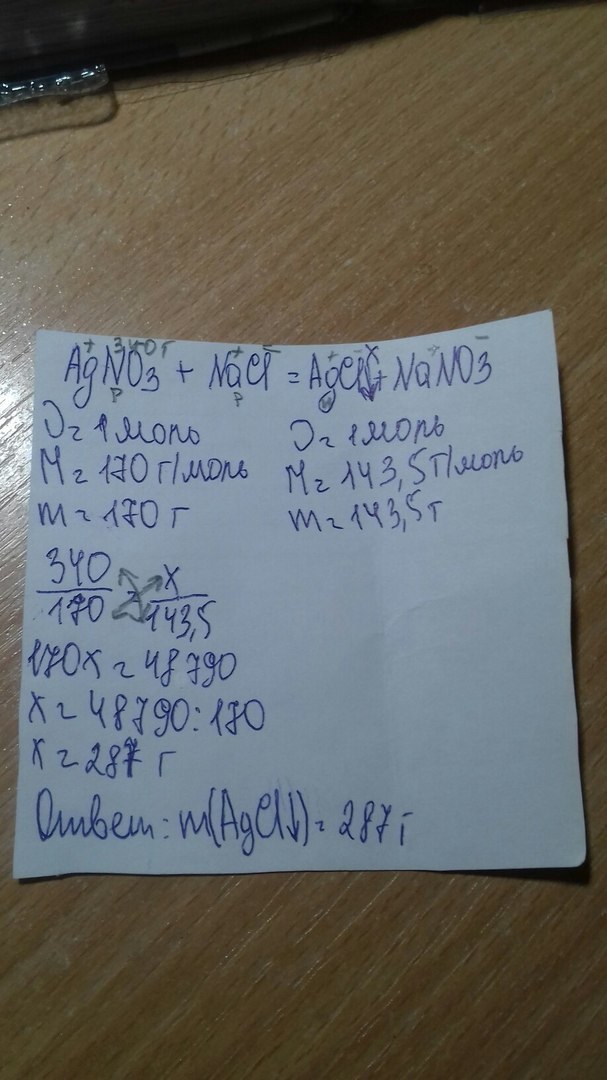 340 г x
AgNO3 + NaCl = AgCl↓ + NaNO3
р р н
ν = 1 моль ν = 1 моль
M = 170 г/моль M = 143,5 г/моль
m = 170 г m = 143,5 г
340/170 = x/143,5
170x = 48790
x = 48790:170
x = 287 г
Ответ: m(AgCl↓) = 287 г